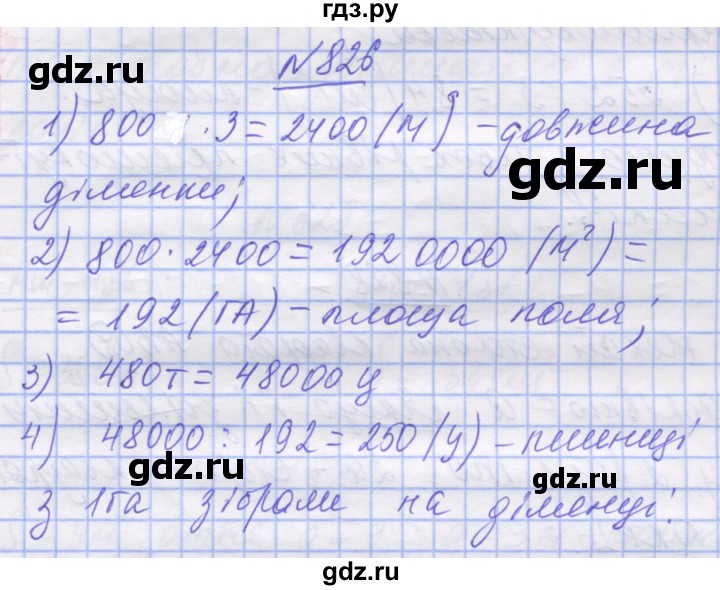 гдз.ру
№826
1) 800 · 3 = 2400 (м) – довжина
ділянки;
2) 800 · 2400 = 192 0000 (м²) =
= 192 (га) – площа поля;
3) 480т = 48000 ц
4) 48000 : 192 = 250 (ц) – пшениці
з 1га зібрали на ділянці.
gdz.ru
gdz.ru
gdz.ru
gdz.ru
gdz.ru
гдз.ру